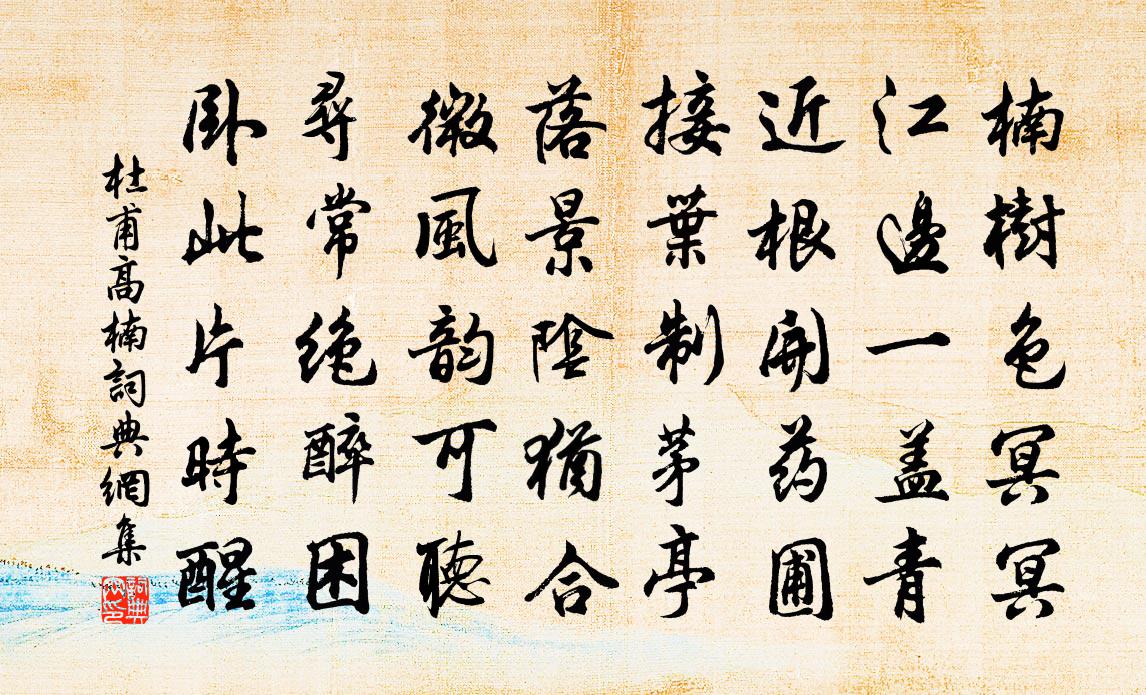 楠樹色冥冥
江邊一盖青
近根開药圃
接葉制茅亭
落景陰猶合
微風韵可聽
尋常絶醉困
卧此片時醒
杜甫高楠詞典網集